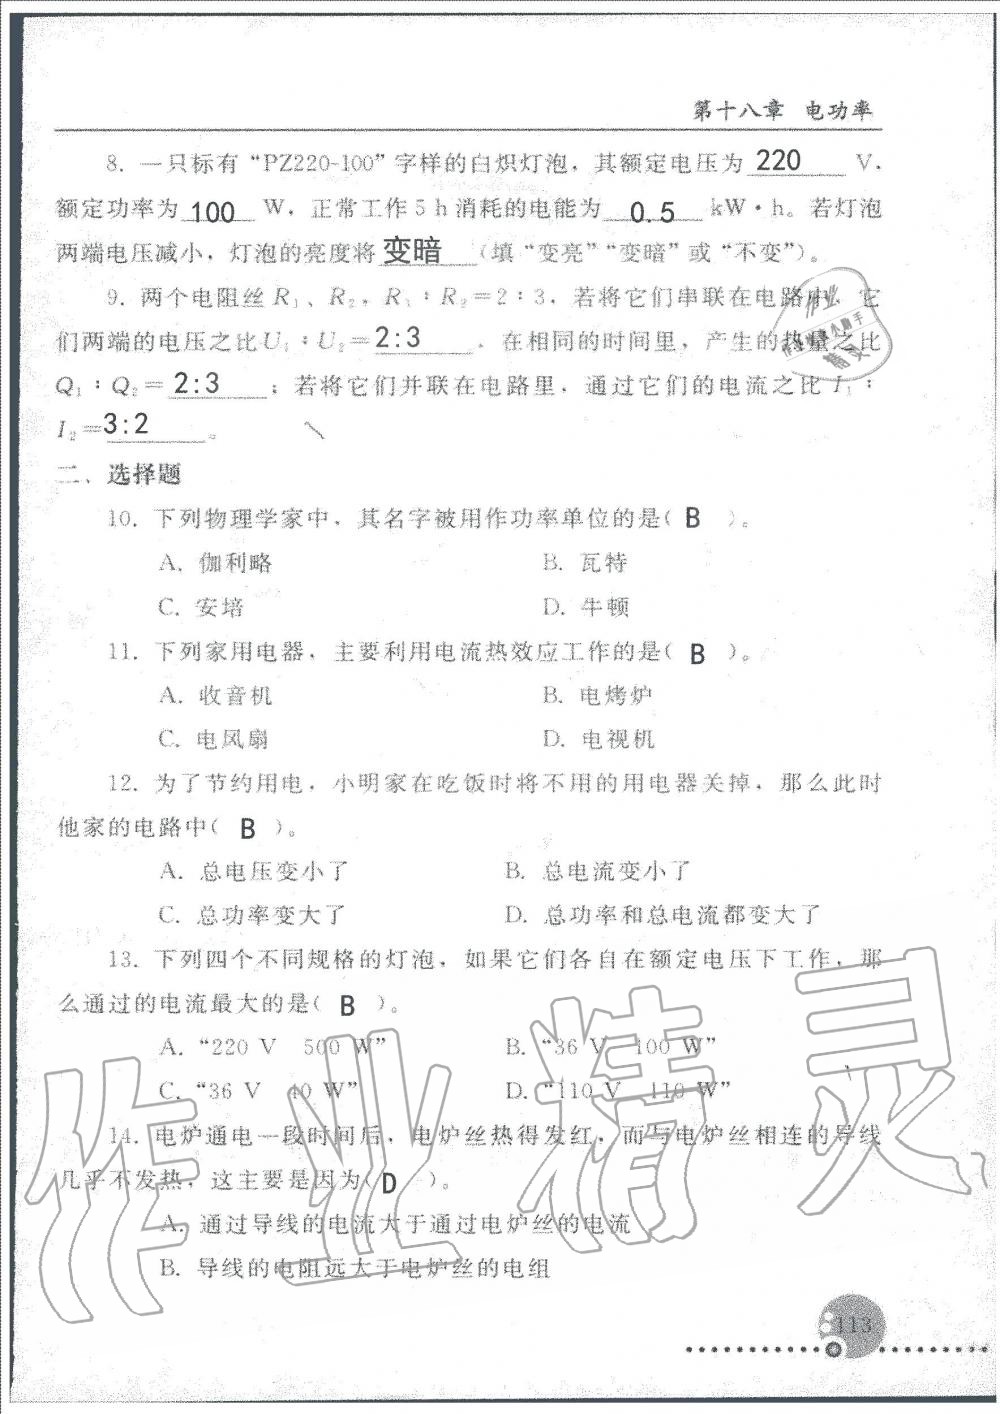 第十八章 电功率
8. 一只标有“PZ220-100”字样的白炽灯泡，其额定电压为 220 V，
额定功率为 100 W，正常工作5 h消耗的电能为 0.5 kW·h。若灯泡
两端电压减小，灯泡的亮度将 变暗 （填“变亮”“变暗”或“不变”）。
9. 两个电阻丝R₁、R₂，R₁∶R₂=2∶3，若将它们串联在电路中，它
们两端的电压之比U₁∶U₂= 2:3 ，在相同的时间里，产生的热量之比
Q₁∶Q₂= 2:3 ；若将它们并联在电路里，通过它们的电流之比I₁∶
I₂= 3:2 。
二、选择题
10. 下列物理学家中，其名字被用作功率单位的是( B )。
A. 伽利略 B. 瓦特
C. 安培 D. 牛顿
11. 下列家用电器，主要利用电流热效应工作的是( B )。
A. 收音机 B. 电烤炉
C. 电风扇 D. 电视机
12. 为了节约用电，小明家在吃饭时将不用的用电器关掉，那么此时
他家的电路中( B )。
A. 总电压变小了 B. 总电流变小了
C. 总功率变大了 D. 总功率和总电流都变大了
13. 下列四个不同规格的灯泡，如果它们各自在额定电压下工作，那
么通过的电流最大的是( B )。
A. “220 V 500 W” B. “36 V 100 W”
C. “36 V 40 W” D. “110 V 110 W”
14. 电炉通电一段时间后，电炉丝热得发红，而与电炉丝相连的导线
几乎不发热，这主要是因为( D )。
A. 通过导线的电流大于通过电炉丝的电流
B. 导线的电阻远大于电炉丝的电组
113
作业精灵